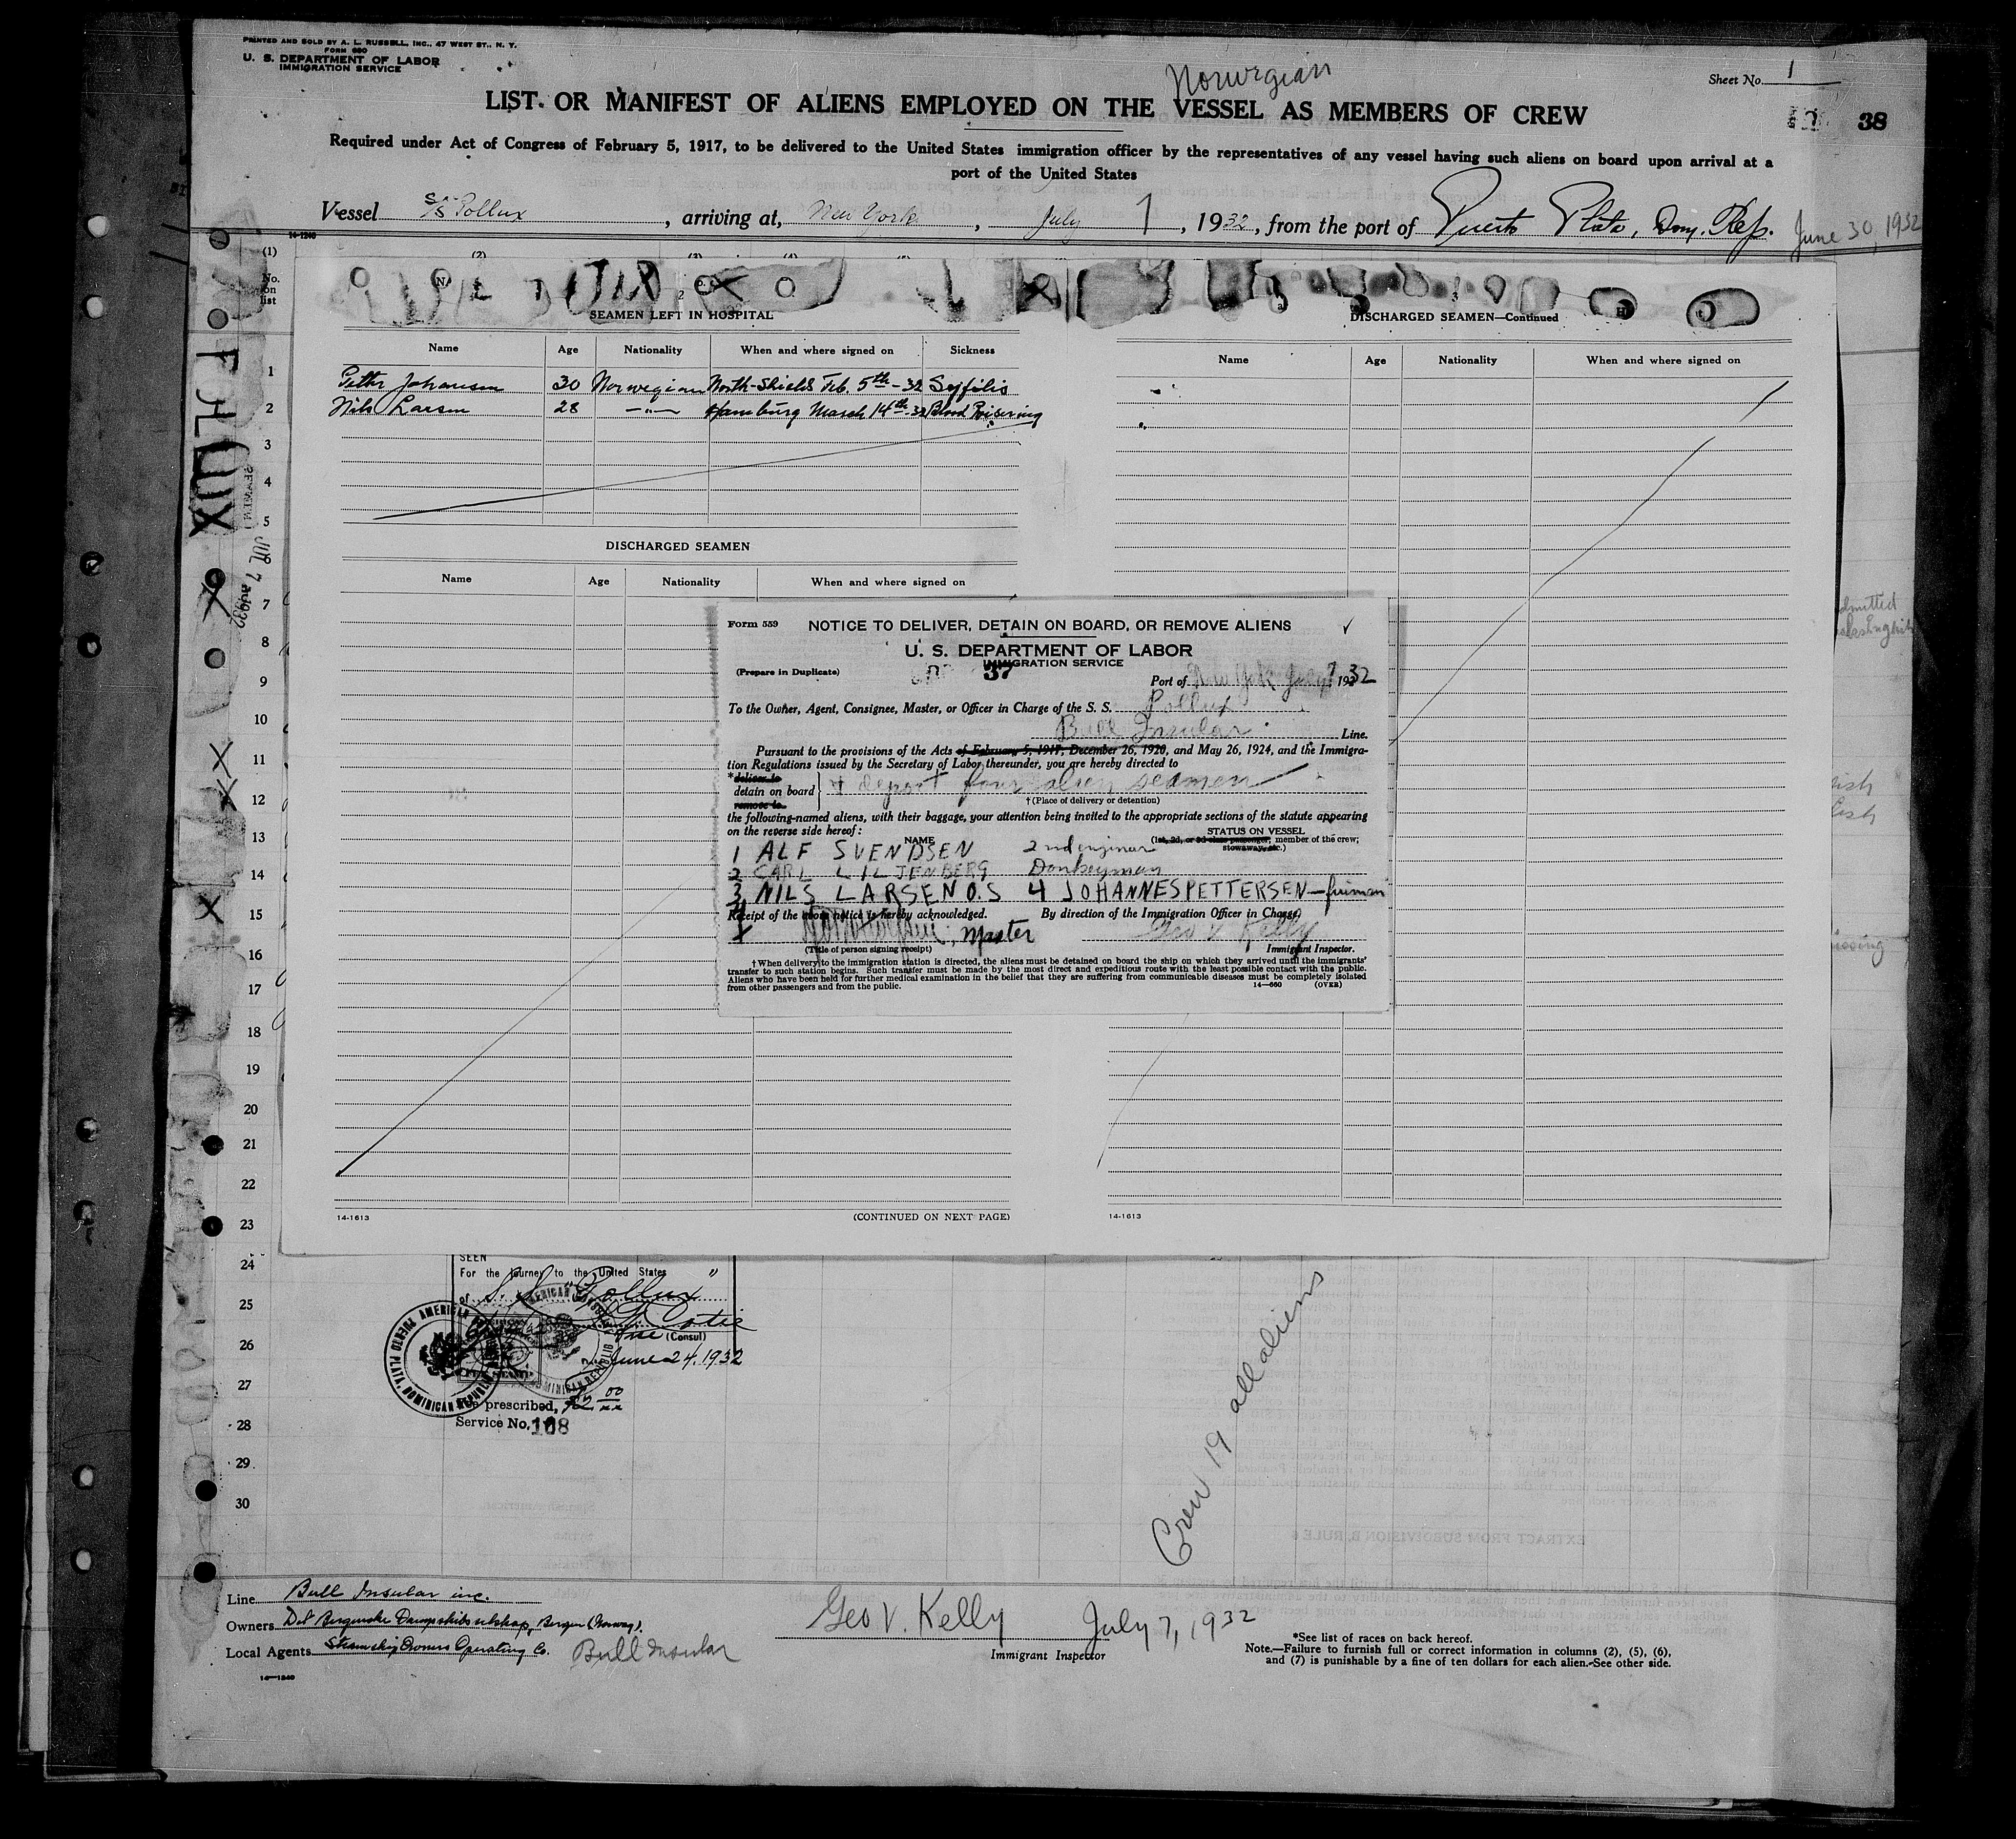 PRINTED AND SOLD BY A. L. RUSSELL, INC., 47 WEST ST., N. Y.
FORM 680
U. S. DEPARTMENT OF LABOR
IMMIGRATION SERVICE
Norwegian
Sheet No. 1
LIST OR MANIFEST OF ALIENS EMPLOYED ON THE VESSEL AS MEMBERS OF CREW
38
Required under Act of Congress of February 5, 1917, to be delivered to the United States immigration officer by the representatives of any vessel having such aliens on board upon arrival at a
port of the United States
Vessel S/S Pollux, arriving at, New York, July 7, 1932, from the port of Puerto Plata, Dom. Rep. June 30, 1932
14-1240
(1) (2) (3) (4)
No. on list
SEAMEN LEFT IN HOSPITAL
Name Age Nationality When and where signed on Sickness
Johansen 30 Norwegian North-Shields Feb. 5th-32 Syfilis
Nils Larsen 28 -"- Hamburg March 14th-32 Blood Poisering
DISCHARGED SEAMEN—Continued
Name Age Nationality When and where signed on
DISCHARGED SEAMEN
Name Age Nationality When and where signed on
POLLUX
JUL 7 1932
1
2
3
4
5
7
8
9
10
11
12
13
14
15
16
17
18
19
20
21
22
23
24
25
26
27
28
29
30
Form 559 NOTICE TO DELIVER, DETAIN ON BOARD, OR REMOVE ALIENS
U. S. DEPARTMENT OF LABOR
IMMIGRATION SERVICE
(Prepare in Duplicate) 37
Port of New York July 7 1932
To the Owner, Agent, Consignee, Master, or Officer in Charge of the S. S. Pollux
Bull Insular Line.
Pursuant to the provisions of the Acts of February 5, 1917, December 26, 1920, and May 26, 1924, and the Immigra-
tion Regulations issued by the Secretary of Labor thereunder, you are hereby directed to
*deliver to
detain on board + deport four alien seamen
remove to
†(Place of delivery or detention)
the following-named aliens, with their baggage, your attention being invited to the appropriate sections of the statute appearing
on the reverse side hereof:
NAME STATUS ON VESSEL
(1st, 2d, or 3d class passenger, member of the crew, stowaway, etc.)
1 ALF SVENDSEN 2nd engineer
2 CARL LILJENBERG Donkeyman
3 NILS LARSEN O.S 4 JOHANNES PETTERSEN—fireman
Receipt of the above notice is hereby acknowledged. By direction of the Immigration Officer in Charge,
X , Master Geo V Kelly
(Title of person signing receipt) Immigrant Inspector.
†When delivery to the immigration station is directed, the aliens must be detained on board the ship on which they arrived until the immigrants'
transfer to such station begins. Such transfer must be made by the most direct and expeditious route with the least possible contact with the public.
Aliens who have been held for further medical examination in the belief that they are suffering from communicable diseases must be completely isolated
from other passengers and from the public. 14—680 (OVER)
14-1613 (CONTINUED ON NEXT PAGE) 14-1613
SEEN
For the journey to the United States
of S. S. "Pollux"
Vice (Consul)
June 24, 1932
prescribed, $2.00
Service No. 168
PUERTO PLATA, DOMINICAN REPUBLIC
Crew 19 all aliens
Line Bull Insular inc.
Owners Det Bergenske Dampskibsselskap, Bergen (Norway).
Local Agents Steamship Owners Operating Co. Bull Insular
14—1240
Geo V. Kelly July 7, 1932
Immigrant Inspector
*See list of races on back hereof.
Note.—Failure to furnish full or correct information in columns (2), (5), (6),
and (7) is punishable by a fine of ten dollars for each alien. See other side.